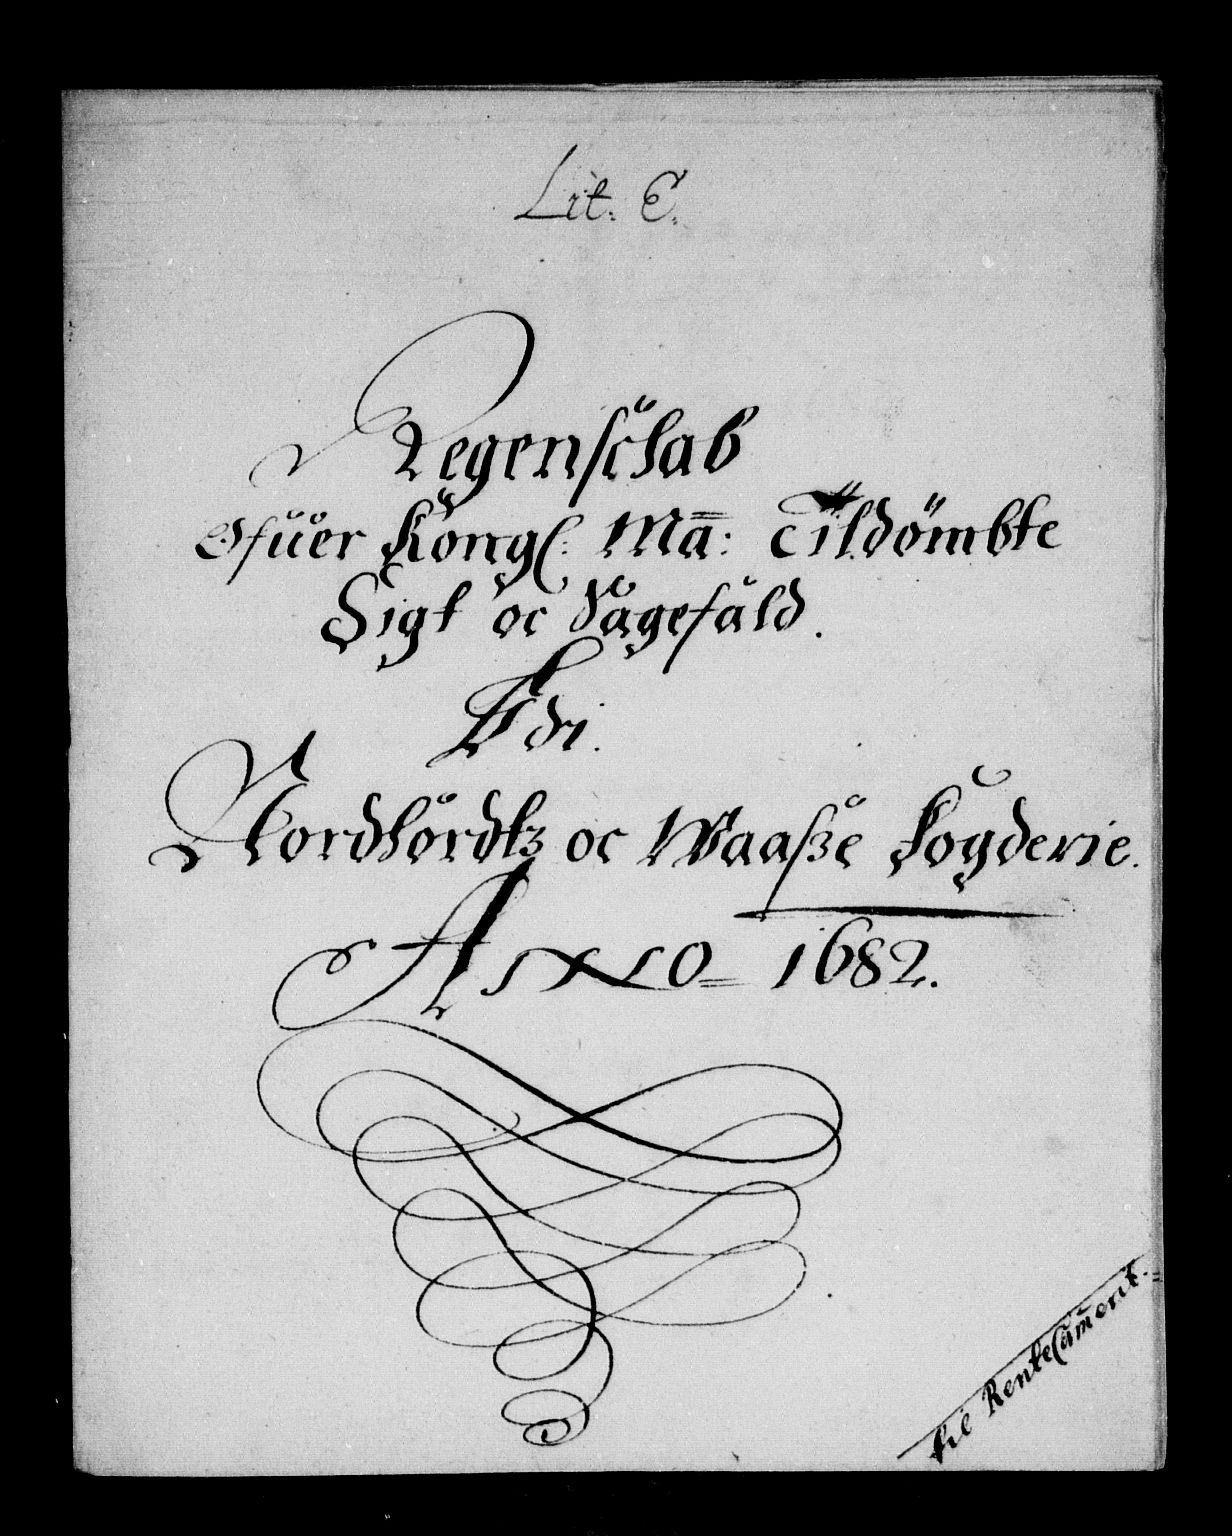 Lit: E.
Regenschab
Ofuer Kongl: Ma: Tildømbte
Sigt oc Sagefald.
Udi.
Nordhordlz oc Waasße Fogderie.
ANNO 1682.
til RenteCamerit